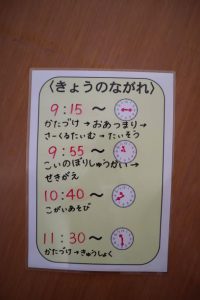 〈きょうのながれ〉
9:15〜
かたづけ→おあつまり→
さーくるたいむ→たいそう
9:55〜
こいのぼりしゅうかい→
せきがえ
10:40〜
こがいあそび
11:30〜
かたづけ→きゅうしょく